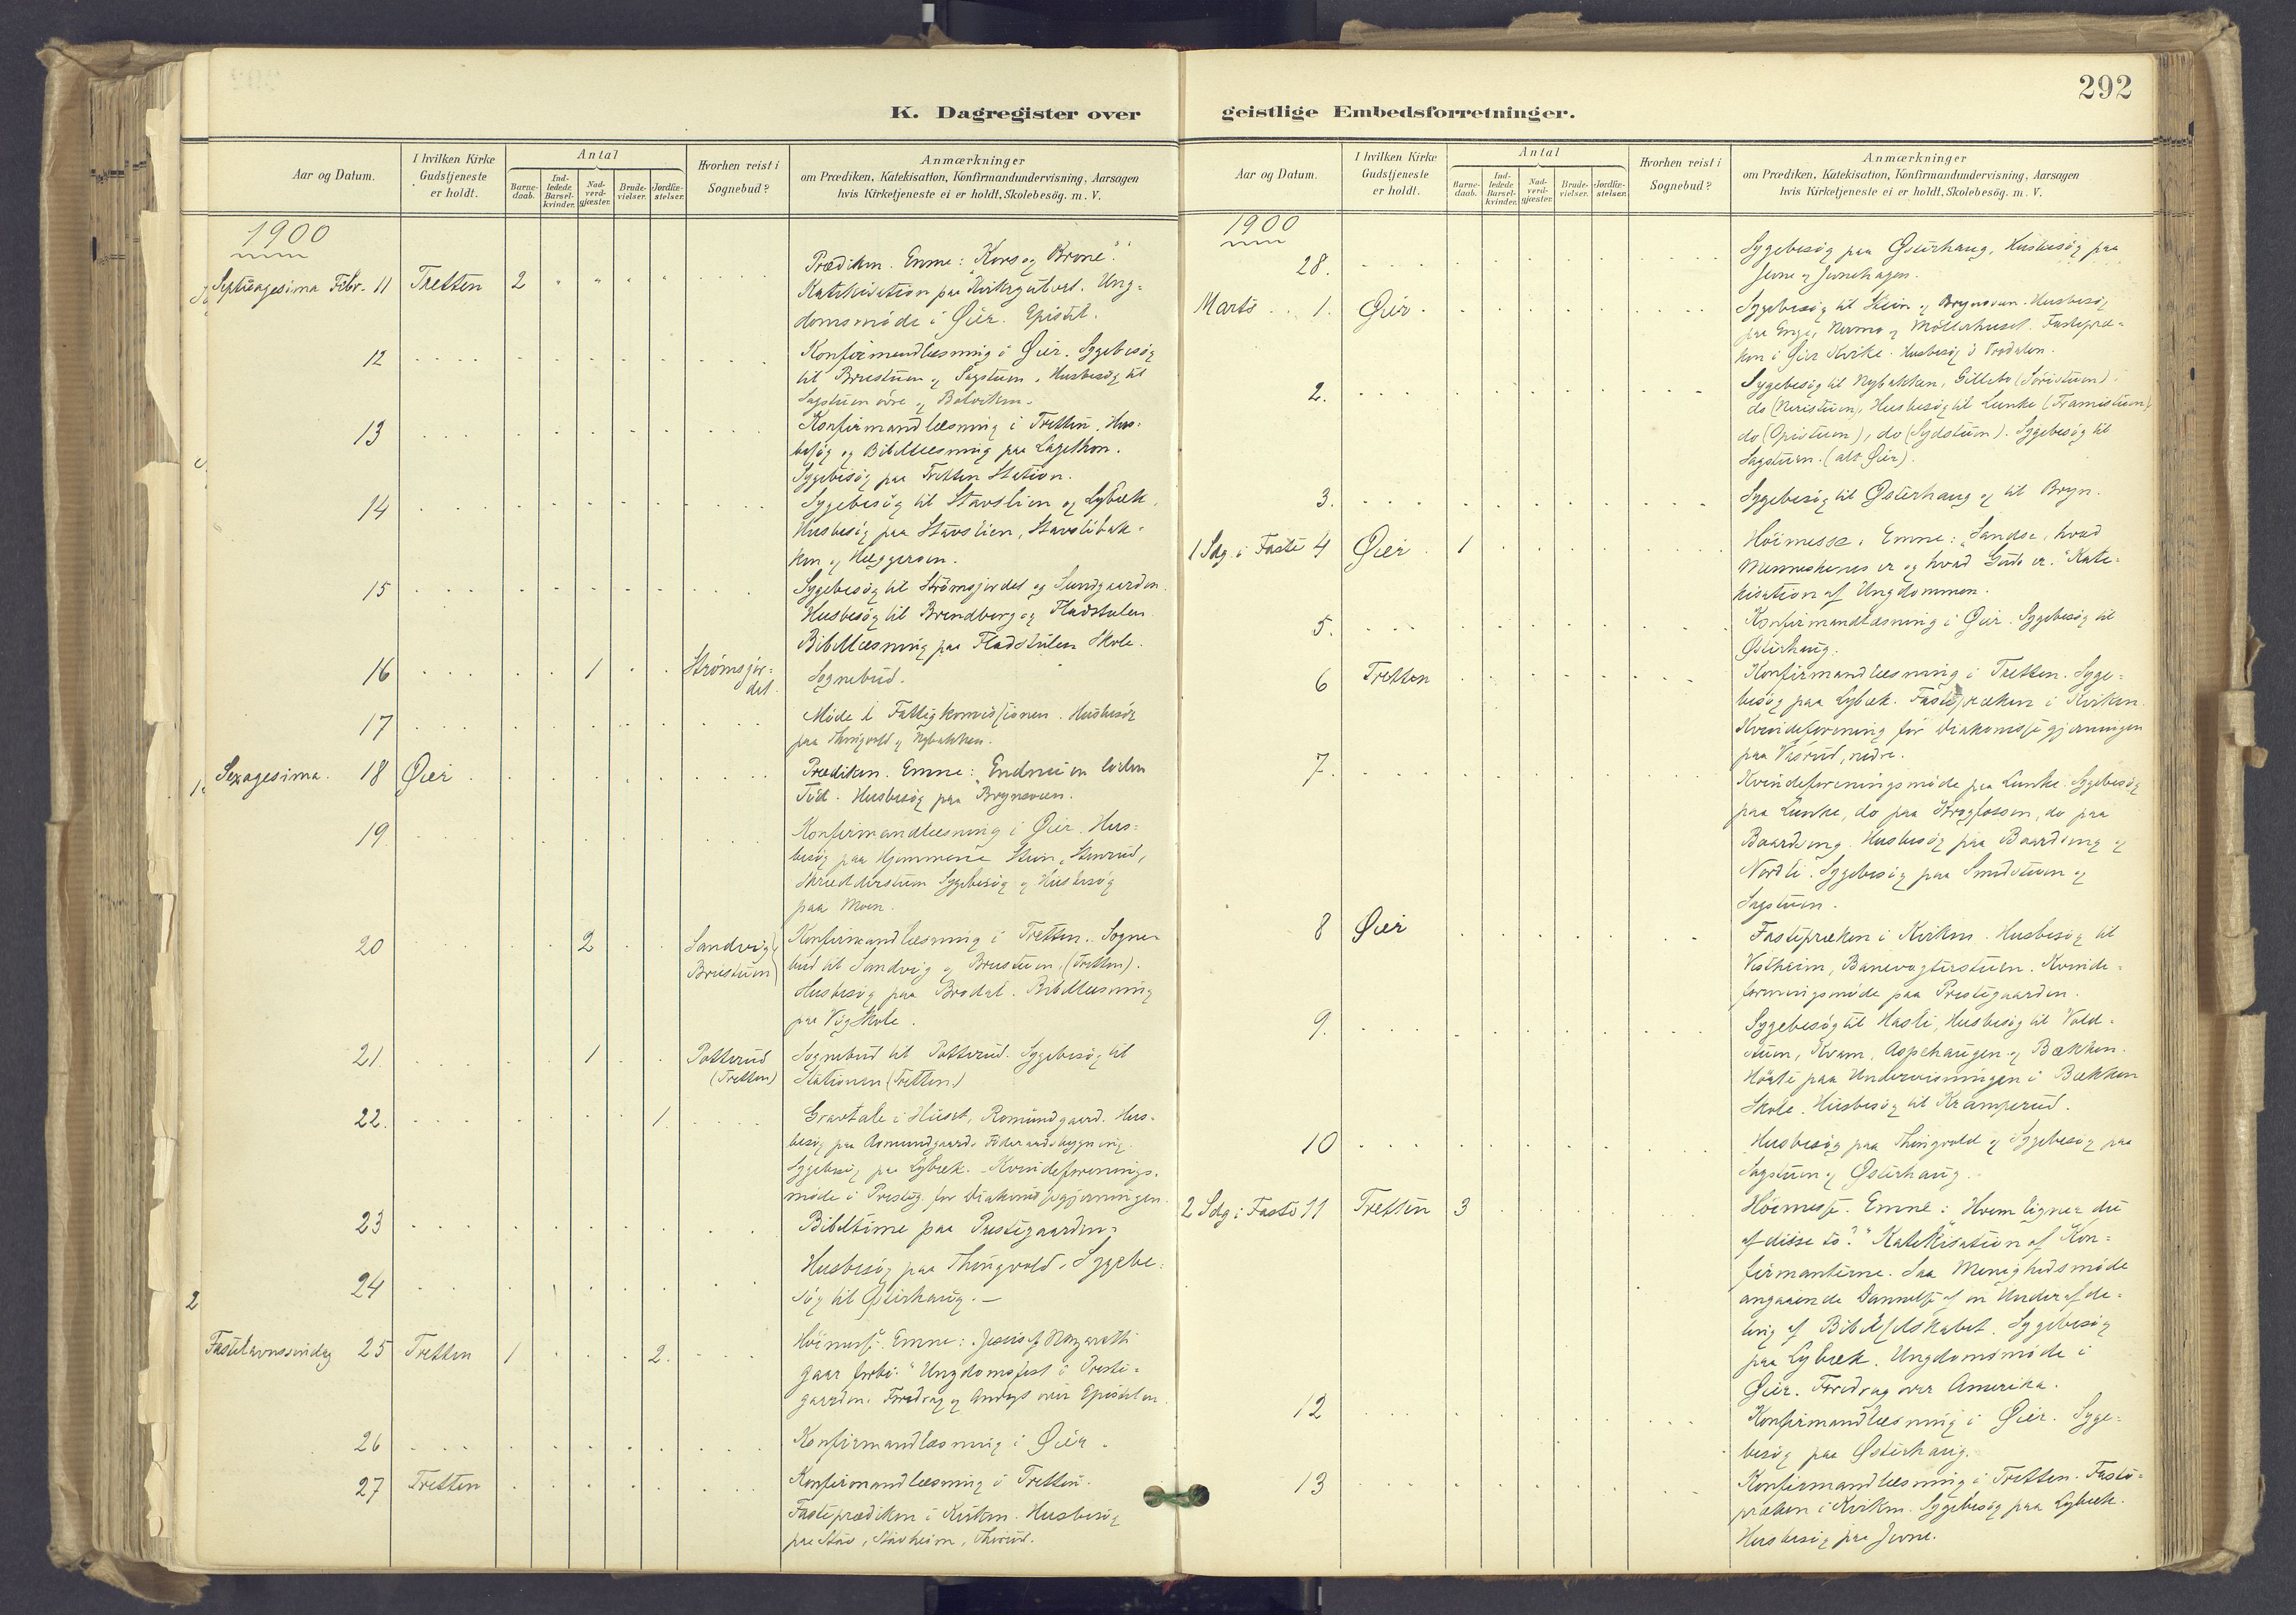 292
K. Dagregister over
geistlige Embedsforretninger.
Aar og Datum.
I hvilken Kirke
Gudstjeneste
er holdt.
Antal
Barne-
daab.
Ind-
ledede
Barsel-
kvinder.
Nad-
verd-
gjæster.
Brude-
vielser.
Jordfæ-
stelser.
Hvorhen reist i
Sognebud?
Anmærkninger
om Prædiken, Katekisation, Konfirmandundervisning, Aarsagen
hvis Kirketjeneste ei er holdt, Skolebesög. m. V.
1900
Septuagesima Febr. 11 Tretten 2 Prædiken. Emne: "Kors og Krone".
Katekisation paa Kirkegulvet. Ung-
domsmöde i Øier. Epistel.
12 Konfirmandlæsning i Øier. Sygebesög
til Brustuen og Sagstuen. Husbesög til
Sagstuen øvre og
13 Konfirmandlæsning i Tretten. Hus-
besög og Bibellæsning paa
Sygebesög paa Tretten Station.
14 Sygebesög til Stavslien og Lybæk.
Husbesög paa Stavslien, Stavslibak-
ken og
15 Sygebesög til Strömsjordet og Sundgaarden.
Husbesög til Brendberg og Fladstulen
Bibellæsning paa Fladstulen Skole.
16 1 Strömsjor-
det Sognebud.
17 Möde i Fattigkommissionen. Husbesög
paa Thingvold og Nybakken.
Sexagesima. 18 Øier Prædiken. Emne: "Endnu en liden
Tid. Husbesög paa Brynsveen.
19 Konfirmandlæsning i Øier. Hus-
besög paa Hjemmene Stein, Stenrud,
Skrædderstuen Sygebesög og Husbesög
paa Moen.
20 2 Sandvig
Brustuen Konfirmandlæsning i Tretten. Sogne-
bud til Sandvig og Brustuen, (Tretten).
Husbesög paa Brodal. Bibellæsning
paa Vig Skole.
21. 1 Potterud
(Tretten) Sognebud til Potterud. Sygebesög til
Stationen (Tretten)
22. 1. Gravtale i Huset, Romundgaard. Hus-
besög paa Romundgaards Föderaadsbygning.
Sygebesög paa Lybæk. Kvindeforenings-
möde i Prestg. for Diakonissegjerningen.
23 Bibeltime paa Prestegaarden.
24 Husbesög paa Thingvold. Sygebe-
sög til Østerhaug. —
Fastelavnssöndag 25 Tretten 1 2. Höimesse. Emne: "Jesus af Nazareth
gaar forbi." Ungdomsfest i Preste-
gaarden. Foredrag og Andagt over Epistelen.
26 Konfirmandlæsning i Øier.
27 Tretten Konfirmandlæsning i Tretten.
Fasteprædiken i Kirken. Husbesög
paa Stav, Stavheim,
Aar og Datum.
I hvilken Kirke
Gudstjeneste
er holdt.
Antal
Barne-
daab.
Ind-
ledede
Barsel-
kvinder.
Nad-
verd-
gjæster.
Brude-
vielser.
Jordfæ-
stelser.
Hvorhen reist i
Sognebud?
Anmærkninger
om Prædiken, Katekisation, Konfirmandundervisning, Aarsagen
hvis Kirketjeneste ei er holdt, Skolebesög. m. V.
1900
28. Sygebesög paa Østerhaug, Husbesög paa
Jevne og Jevnehagen.
Marts 1. Øier. Sygebesög til Stein og Brynsveen. Husbesög
paa Enge, og Möllerhuset. Fastepræ-
ken i Øier Kirke. Husbesög i
2. Sygebesög til Nybakken, Gillebo (Söristuen).
do (Neristuen), Husbesög til Lunke (Framistuen)
do (Opistuen), do (Sydstuen). Sygebesög til
Sagstuen. (alt Øier).
3. Sygebesög til Østerhaug og til Bryn.
1 Sdg. i Faste 4 Øier 1 Höimesse. Emne: "Sandse, hvad
Menneskenes er og hvad Guds er." Kate-
kisation af Ungdommen.
5. Konfirmandlæsning i Øier. Sygebesög til
Østerhaug.
6 Tretten Konfirmandlæsning i Tretten. Syge-
besög paa Lybæk. Fastepræken i Kirken.
Kvindeforening for Diakonissegjerningen
paa nedre.
7. Kvindeforeningsmöde paa Lunke. Sygebesög
paa Lunke, do paa do paa
Baardseng. Husbesög paa Baardseng og
Nordli. Sygebesög paa Smedstuen og
Sagstuen.
8 Øier Fastepræken i Kirken. Husbesög til
Vestheim, Banevogterstuen. Kvinde-
foreningsmöde paa Prestegaarden.
9. Sygebesög til Hasli, Husbesög til Vold-
stuen, Kvam, Aspehaugen og Bækken.
Hörte paa Undervisningen i Bækken
Skole. Husbesög til Kramperud.
10 Husbesög paa Thingvold og Sygebesög paa
Sagstuen og Østerhaug.
2 Sdg. i Faste 11 Tretten 3 Höimesse. Emne: Hvem ligner du
af disse to?" Katekisation af Kon-
firmanterne. Saa Menighedsmöde
angaaende Dannelse af en Underafde-
ling af Bibelselskabet. Sygebesög
paa Lybæk. Ungdomsmöde i
Øier. Foredrag over Amerika.
12 Konfirmandlæsning i Øier. Syge-
besög paa Østerhaug.
13 Konfirmandlæsning i Tretten. Faste-
præken i Kirken. Sygebesög paa Lybæk.
Husbesög paa Jevne.